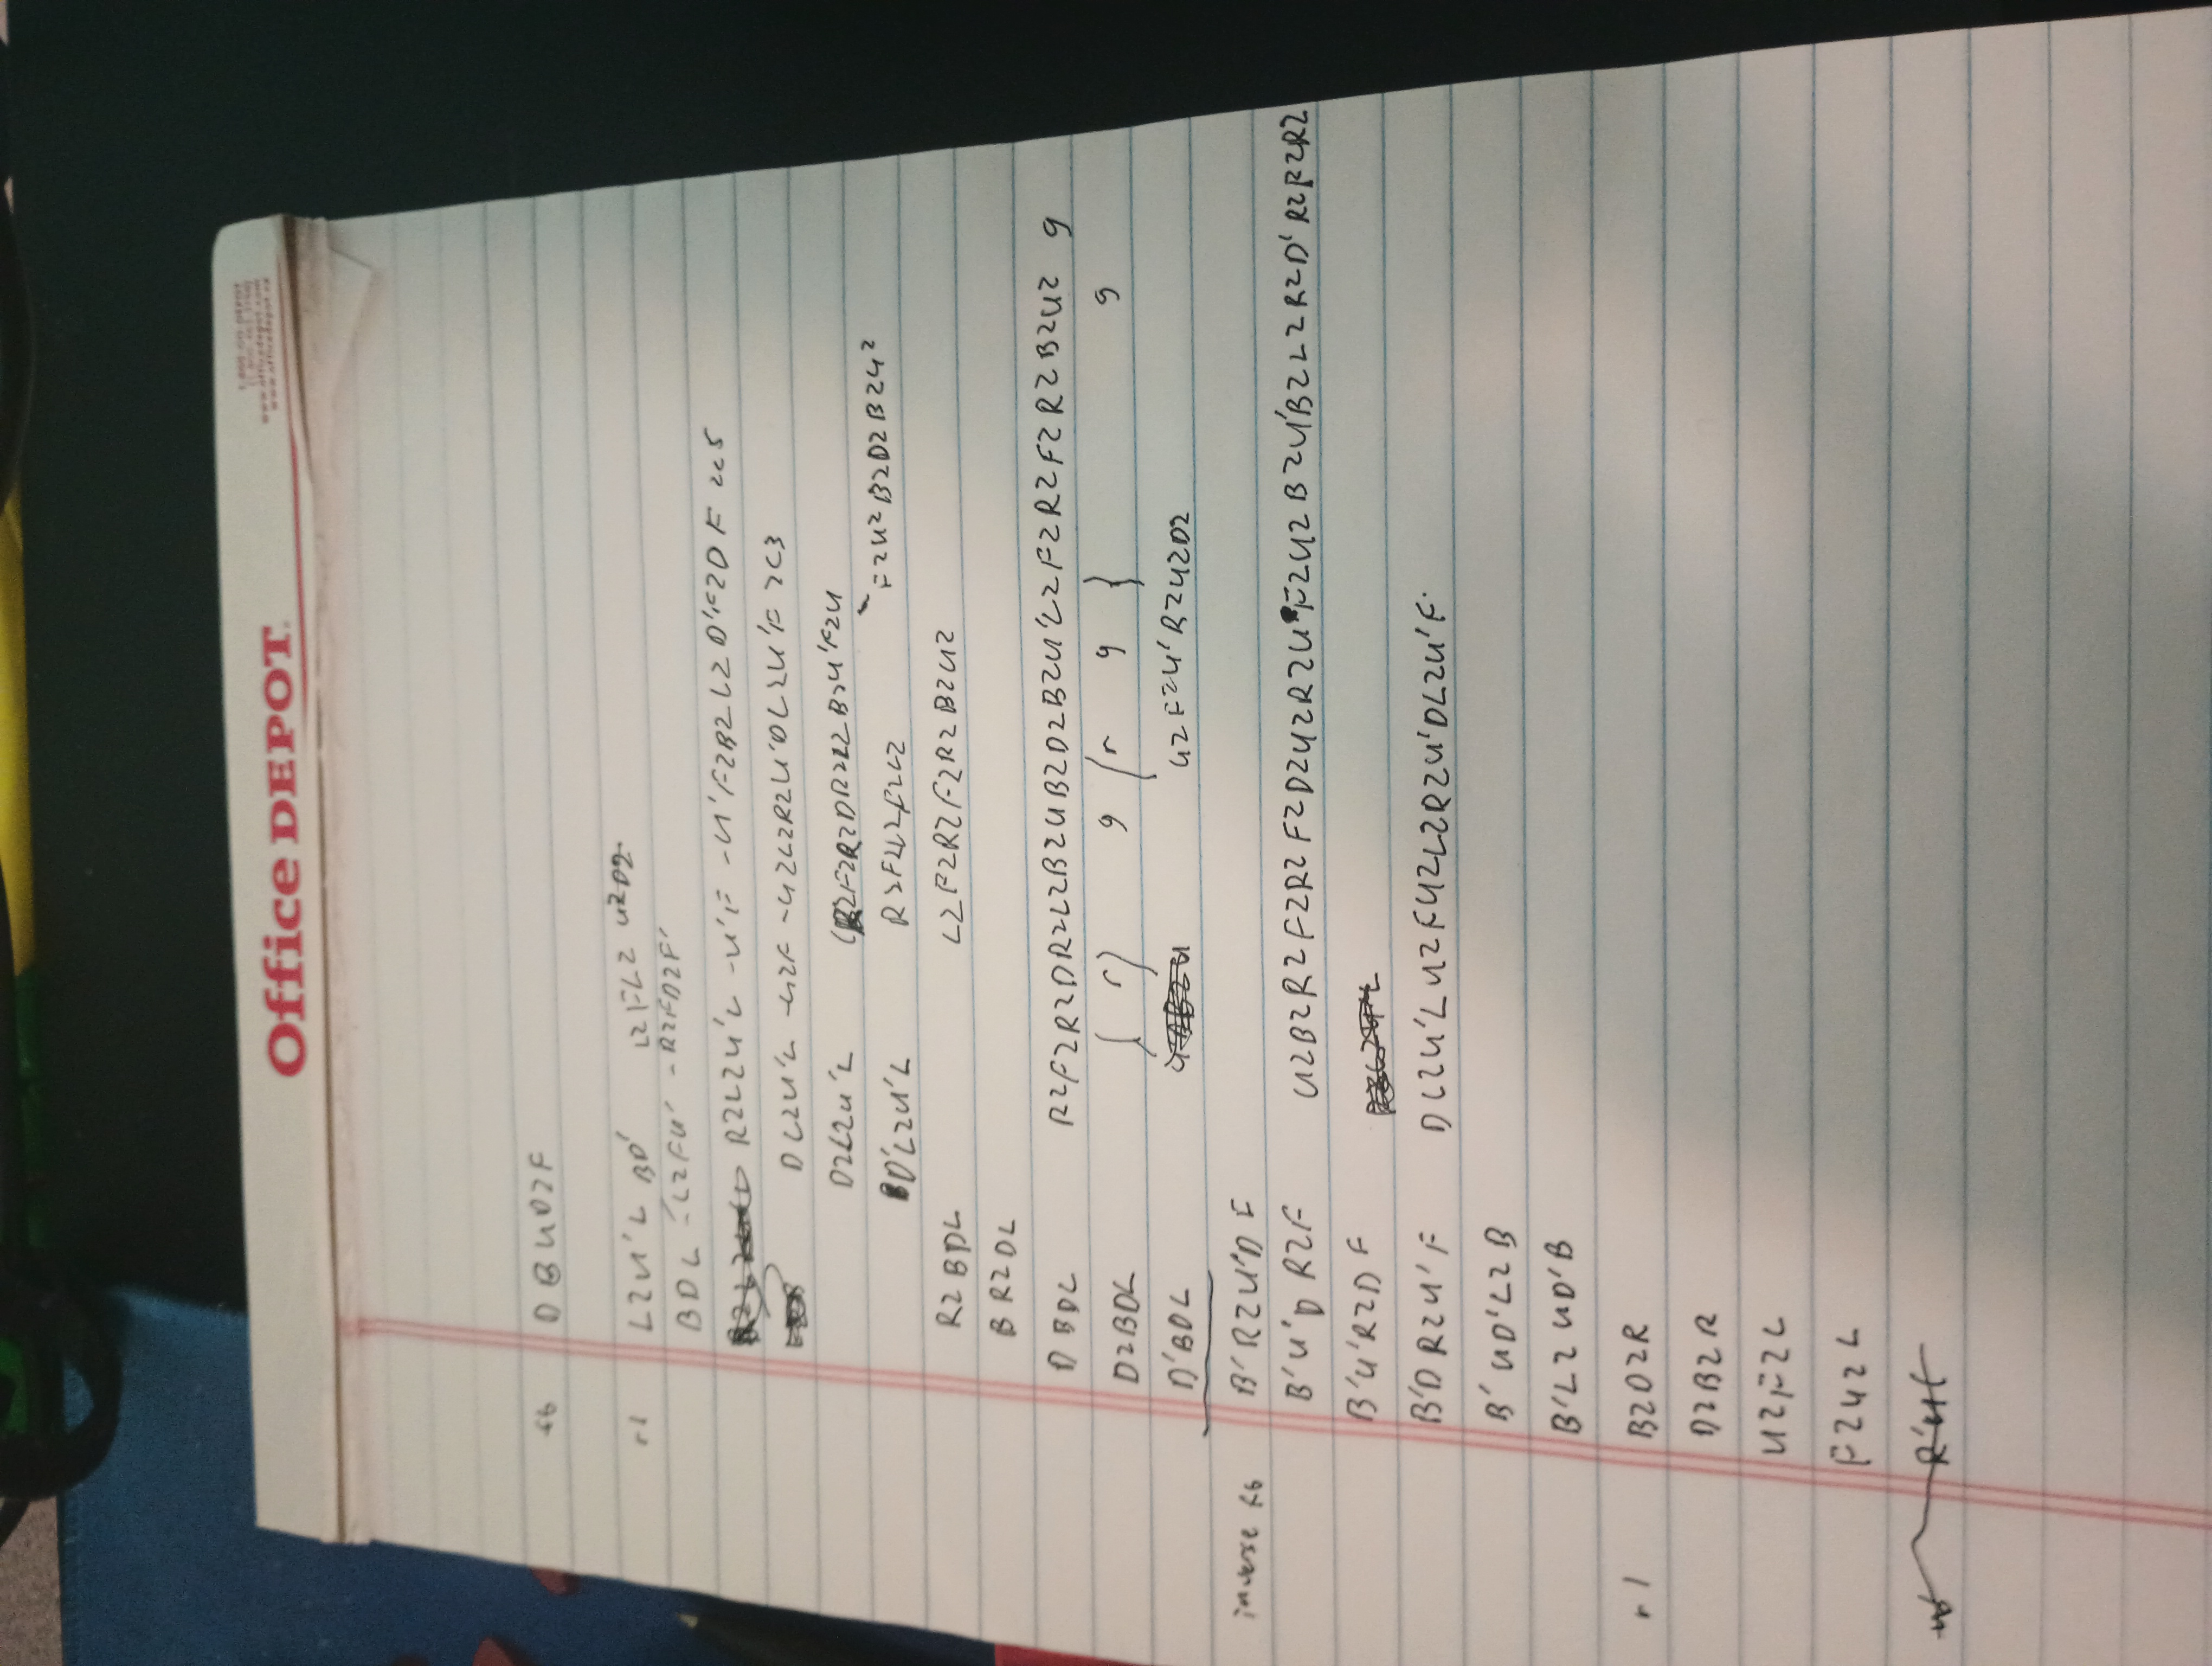 Office DEPOT
fb D B U D2 F
rl L2 U' L B D' L2 F L2 U2 D2
B D L - L2 F U' - R2 F D2 F'
R2 L2 U' L - U' F - U' F2 B2 L2 D' F2 D F
D L2 U' L - U2 F - U2 L2 R2 U' D L2 U' F 2c3
D2 L2 U' L F2 R2 D R2 L2 B2 U' F2 U
D' L2 U' L R2 F2 L2 F2 L2 F2 U2 B2 D2 B2 U2
R2 B D L L2 F2 R2 F2 R2 B2 U2
B R2 D L
D B D L R2 F2 R2 D R2 L2 B2 U B2 D2 B2 U' L2 F2 R2 F2 R2 B2 U2 9
D2 B D L ( r ) 9 ( r 9 ) 9
D' B D L U2 F2 U' R2 U2 D2
inverse fb B' R2 U' D F
B' U' D R2 F U2 B2 R2 F2 R2 F2 D2 U2 R2 U' F2 U2 B2 U' B2 L2 R2 D' R2 F2 R2
B' U' R2 D F
B' D R2 U' F D L2 U' L U2 F U2 L2 R2 U' D L2 U' F
B' U D' L2 B
B' L2 U D' B
rl B2 D2 R
D2 B2 R
U2 F2 L
F2 U2 L